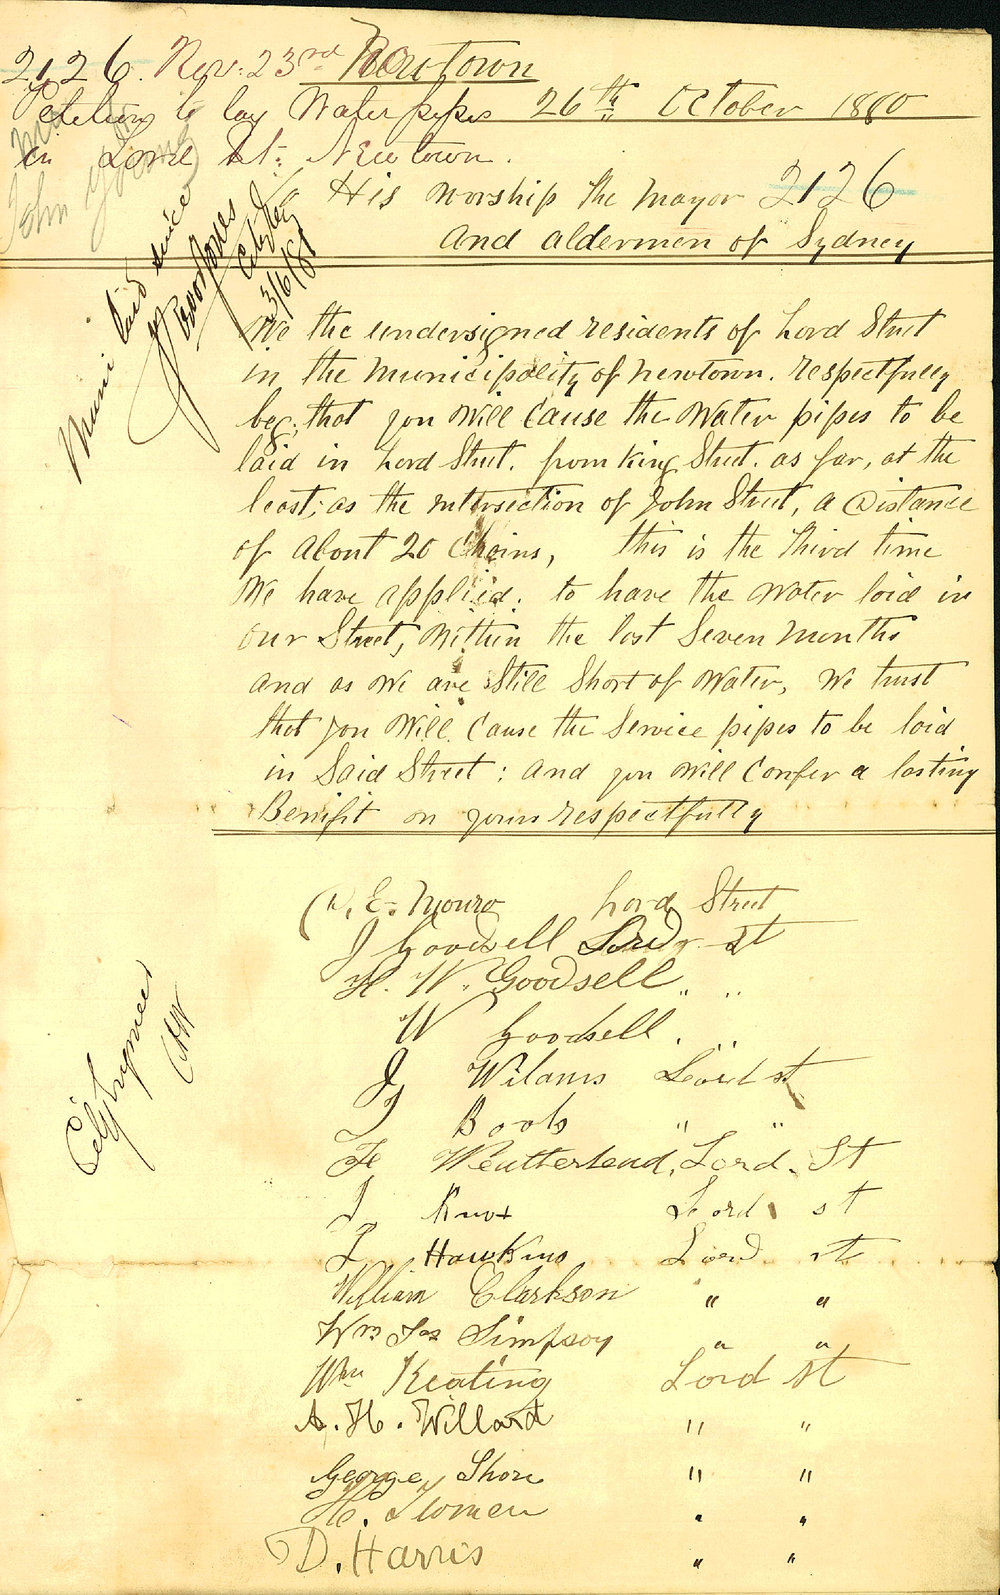 2126. Nov. 23rd Newtown
Petition to lay Water pipes 26th October 1880
in Lord St. Newtown.
To His worship the Mayor 2126
and aldermen of Sydney
Main laid since
City Eng
23/6/81
We the undersigned residents of Lord Street
in the Municipality of Newtown. respectfully
beg, that you will cause the Water pipes to be
laid in Lord Street. from King Street. as far, at the
least, as the intersection of John Street, a Distance
of about 20 Chains, this is the third time
We have applied. to have the Water laid in
our Street, Within the last Seven Months
and as We are Still Short of Water, We trust
that you Will Cause the Service pipes to be laid
in Said Street : and you Will Confer a lasting
Benifit on yours respectfully
D. E. Monro Lord Street
J Goodsell Lord st
H. W. Goodsell " "
W Goodsell " "
J Wilams Lord st
J Boots " "
Weatterhead, Lord. St
J Knox Lord st
T Hawkins Lord st
William Clarkson " "
Wm Jas Simpson " "
Wm Keating Lord St
A. H. Willard " "
George Shore " "
H. " "
D. Harris " "
City Engineer